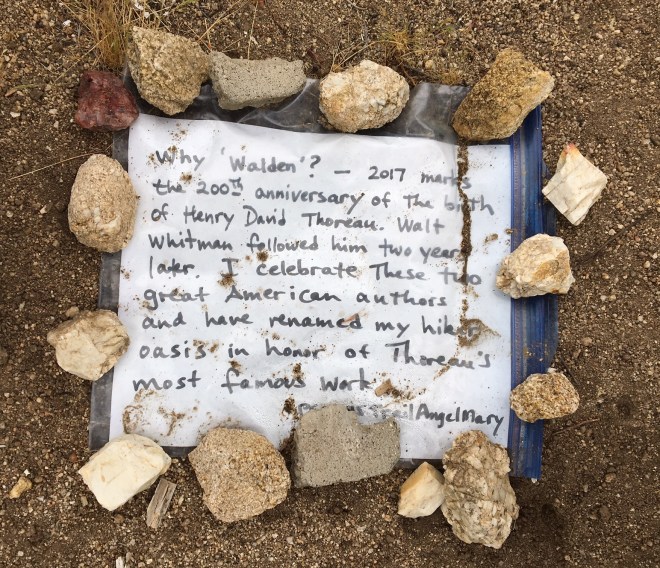 Why 'Walden'? – 2017 marks
the 200th anniversary of The birth
of Henry David Thoreau. Walt
Whitman followed him two years
later. I celebrate These two
great American authors
and have renamed my hiker
oasis in honor of Thoreau's
most famous work
TrailAngelMary